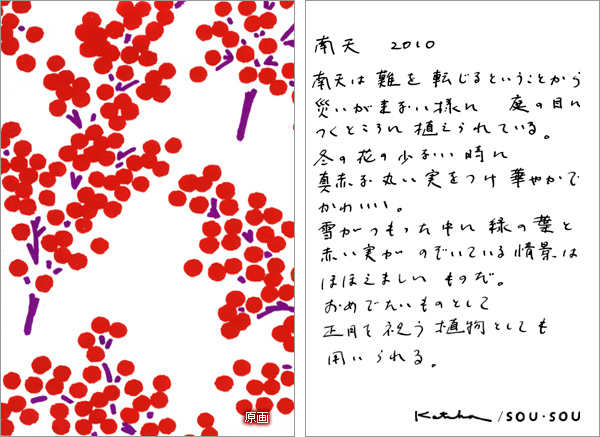 原画
南天 2010
南天は難を転じるということから
災いがまない様に 庭の目に
つくところに植えられている。
冬の花の少ない時に
真赤な丸い実をつけ華やかで
かわいい。
雪がつもった中に緑の葉と
赤い実がのぞいている情景は
ほほえましいものだ。
おめでたいものとして
正月を祝う植物としても
用いられる。
/SOU・SOU